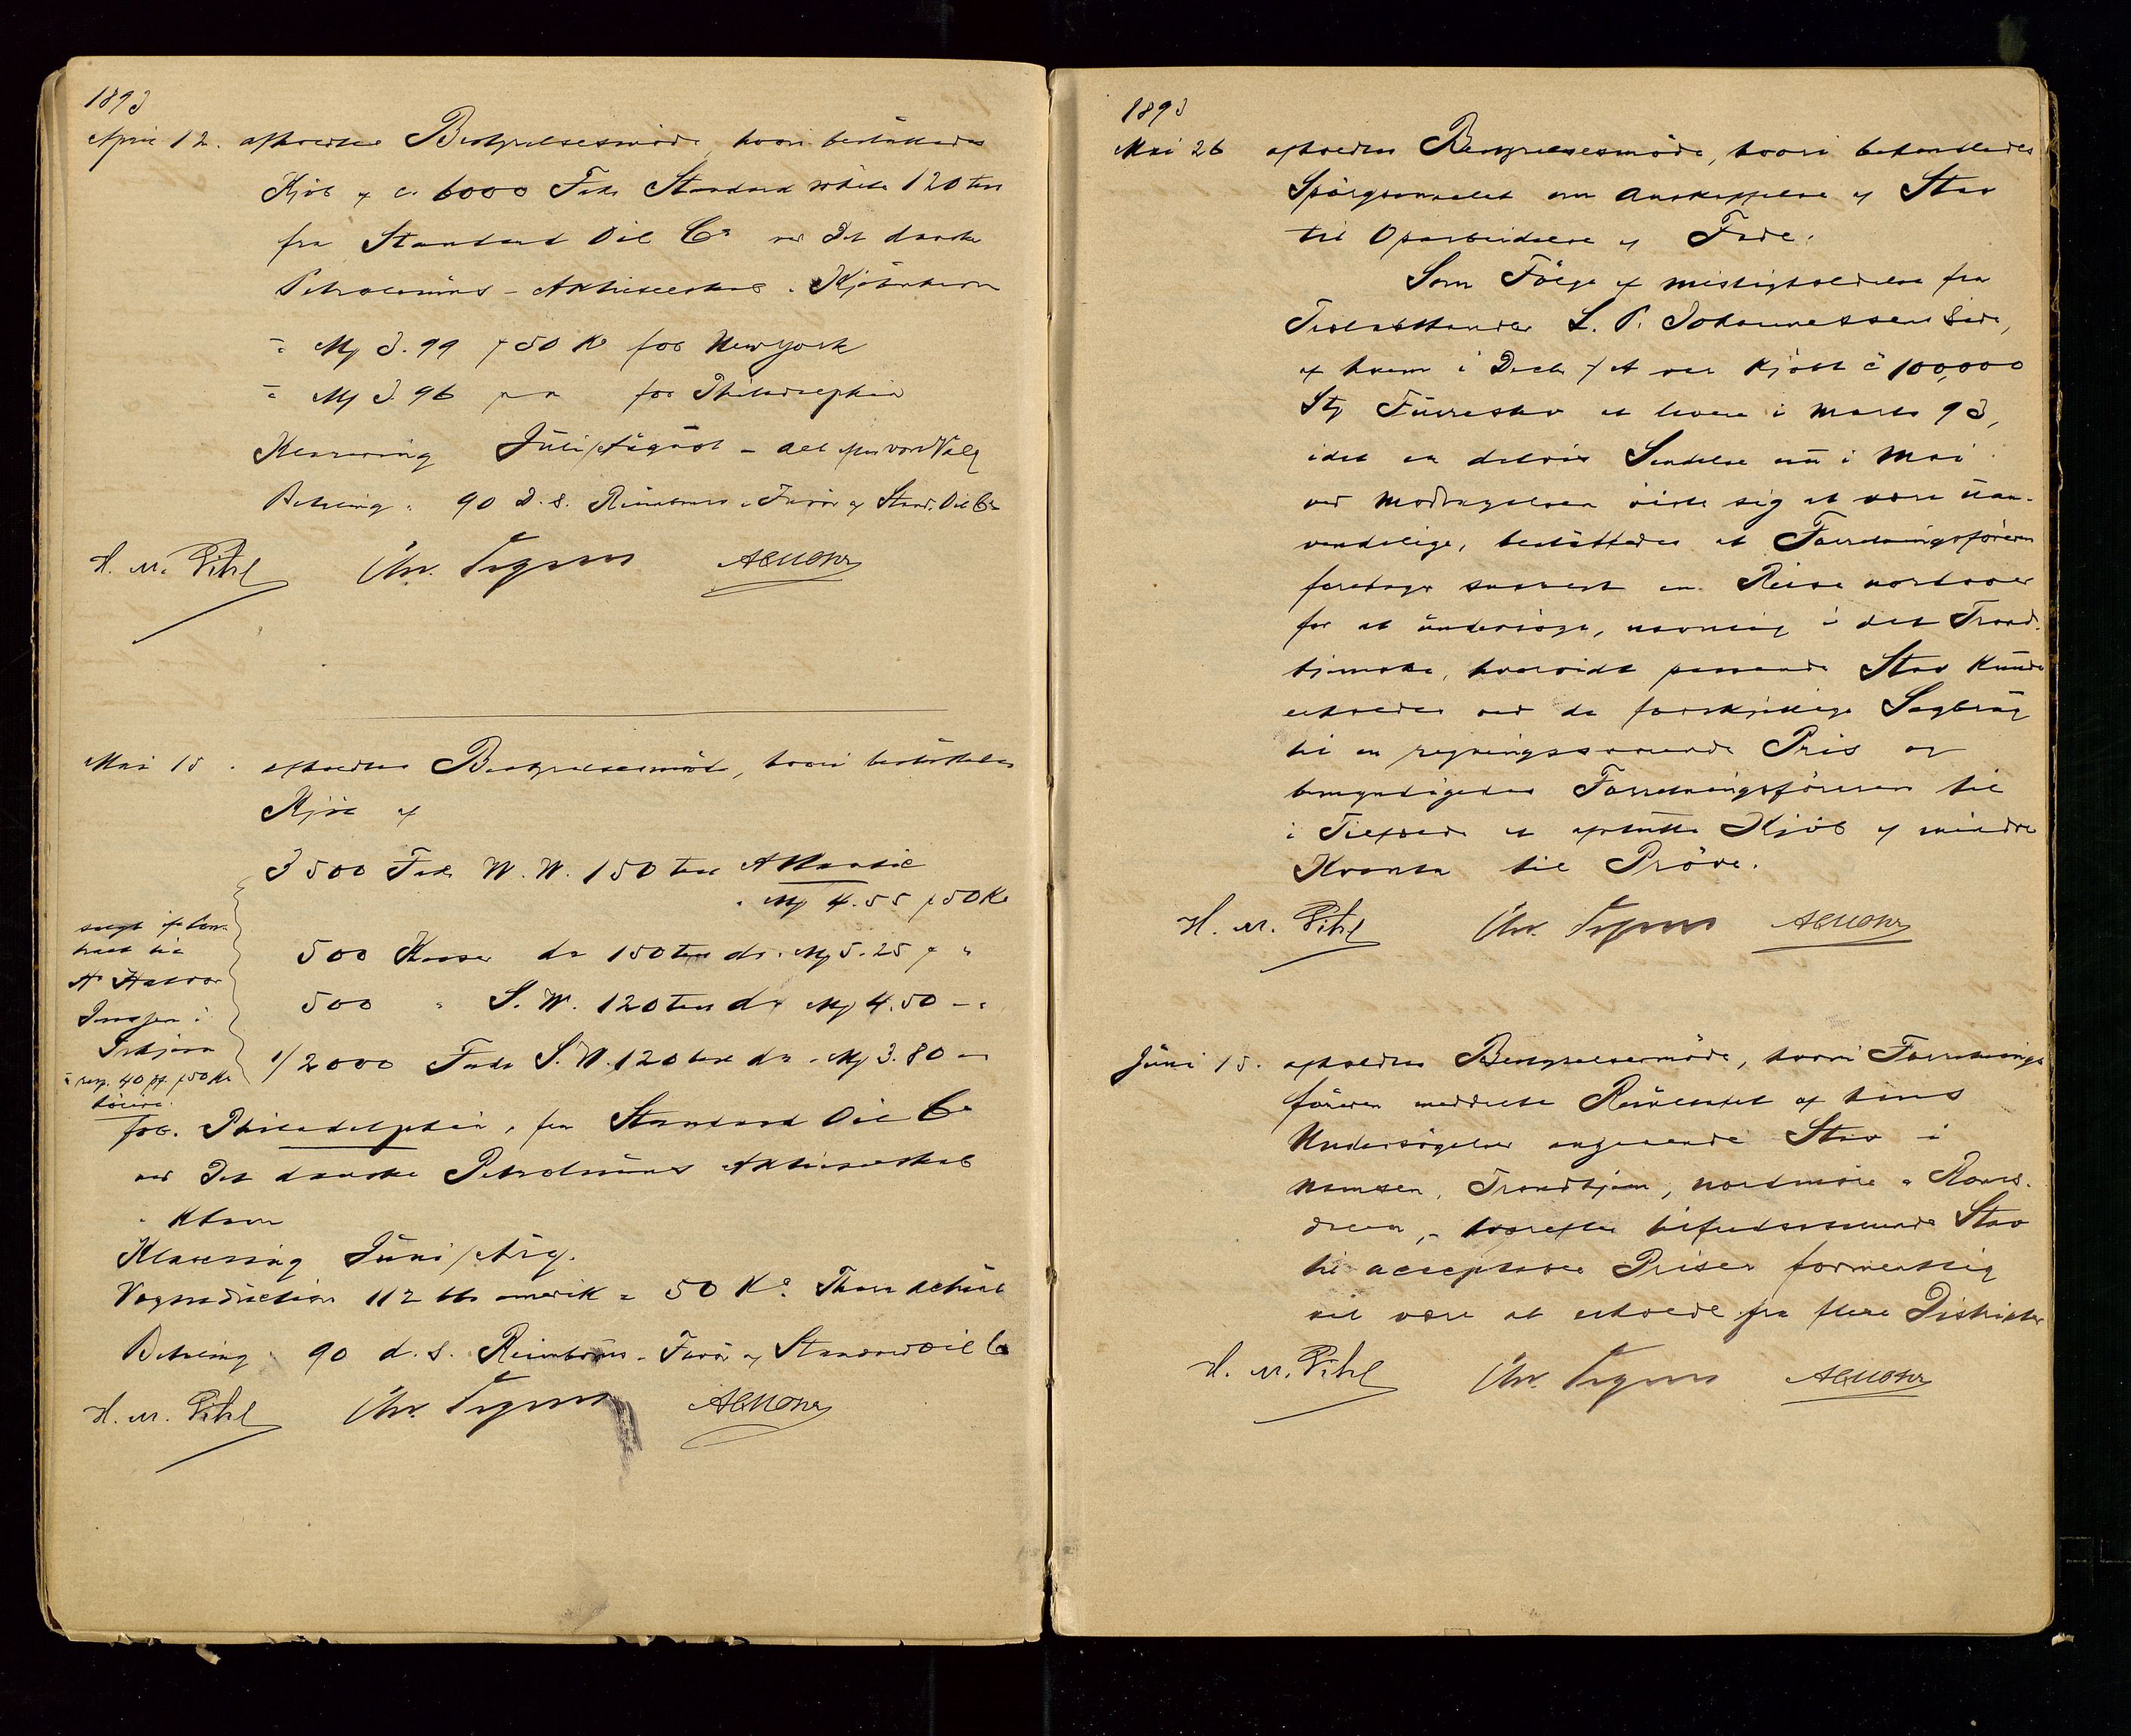 1893
April 12. afholdtes Bestyrelsesmöde, hvori besluttedes
Kjöb af c. 6000 Fade Standard white 120 test
fra Standard Oil Co ved Det danske
Petroleums-Aktieselskab i Kjöbenhavn
à M/ 3.99 p 50 Ko fob New York
à M/ 3.96 p " fob Philadelphia
Klarering Juli/August - alt efter vort Valg
Betaling: 90 d.s. Reimburs i Favör af Stand. Oil Co
H. M. Pihl Chr. AEMohr
Mai 15. afholdtes Bestyrelsesmöde, hvori besluttedes
Kjöb af
3500 Fade W. W. 150 test Atlantic
à M/ 4.55 p 50 Ko
500 Kasser do 150 test do à M/ 5.25 p "
500 " S. W. 120 test do M/ 4.50 - "
1/2000 Fade S. W. 120 test do à M/ 3.80 - "
solgt if kon-
trakt til
Hr Halvor
i
à resp. 40 pf. p 50 Ko
höiere.
fob. Philadelphia, fra Standard Oil Co
ved Det danske Petroleums Aktieselskab
i Kbhavn
Klarering Juni/Aug.
112 lbs amerik = 50 Ko.
Betaling: 90 d. s. Reimburs i Favör af Standard Oil Co
H. M. Pihl Chr. AEMohr
1893
Mai 26 afholdtes Bestyrelsesmöde, hvori behandledes
Spörgsmaalet om Anskaffelse af Stav
til Oparbeidelse af Fade.
Som Fölge af misligholdelse fra
Trælasthandler L. P. Johannessens Side,
af hvem i Decb. f. A. var kjöbt c 100,000
Stk Furrestav at levere i Marts 93,
idet en delvis Sendelse nu i Mai
ved Modtagelsen viste sig at være uan-
vendelige, besluttedes at Forretningsföreren
foretager snarest en Reise nordover
for at undersöge, navnlig i det Trond-
hjemske, hvorvidt passende Stav kunde
erholdes ved de forskjellige Sagbrug
til en regningssvarende Pris og
bemyndigedes Forretningsföreren til
i Tilfælde at afslutte Kjöb af mindre
Kvanta til Pröve.
H. M. Pihl Chr. AEMohr
Juni 15. afholdtes Bestyrelsesmöde, hvori Forretnings-
föreren meddelte Resultatet af hans
Undersögelser angaaende Stav i
Namsen, Trondhjem, Nordmöre & Roms-
dalen, - hvorefter tilfredsstillende Stav
til acceptable Priser formentlig
vil være at erholde fra flere Distrikter
H. M. Pihl Chr. AEMohr